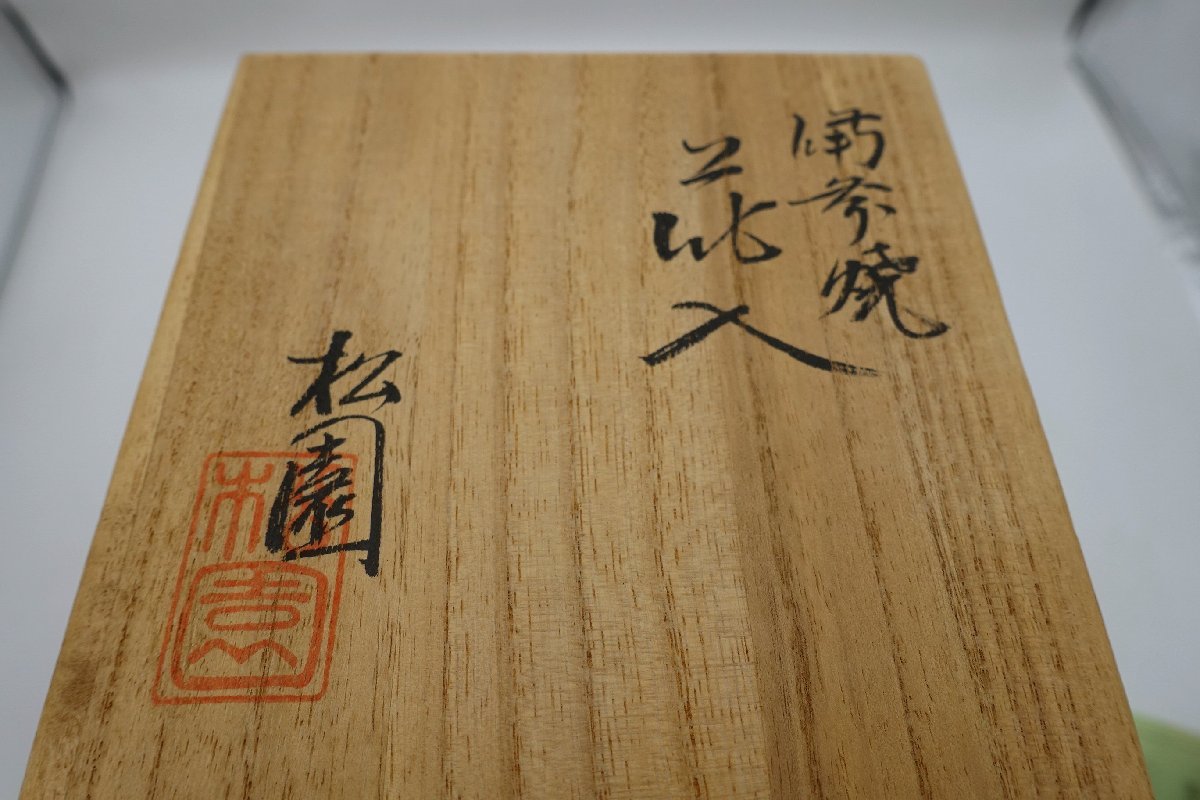 備前焼
花入
松園
松園